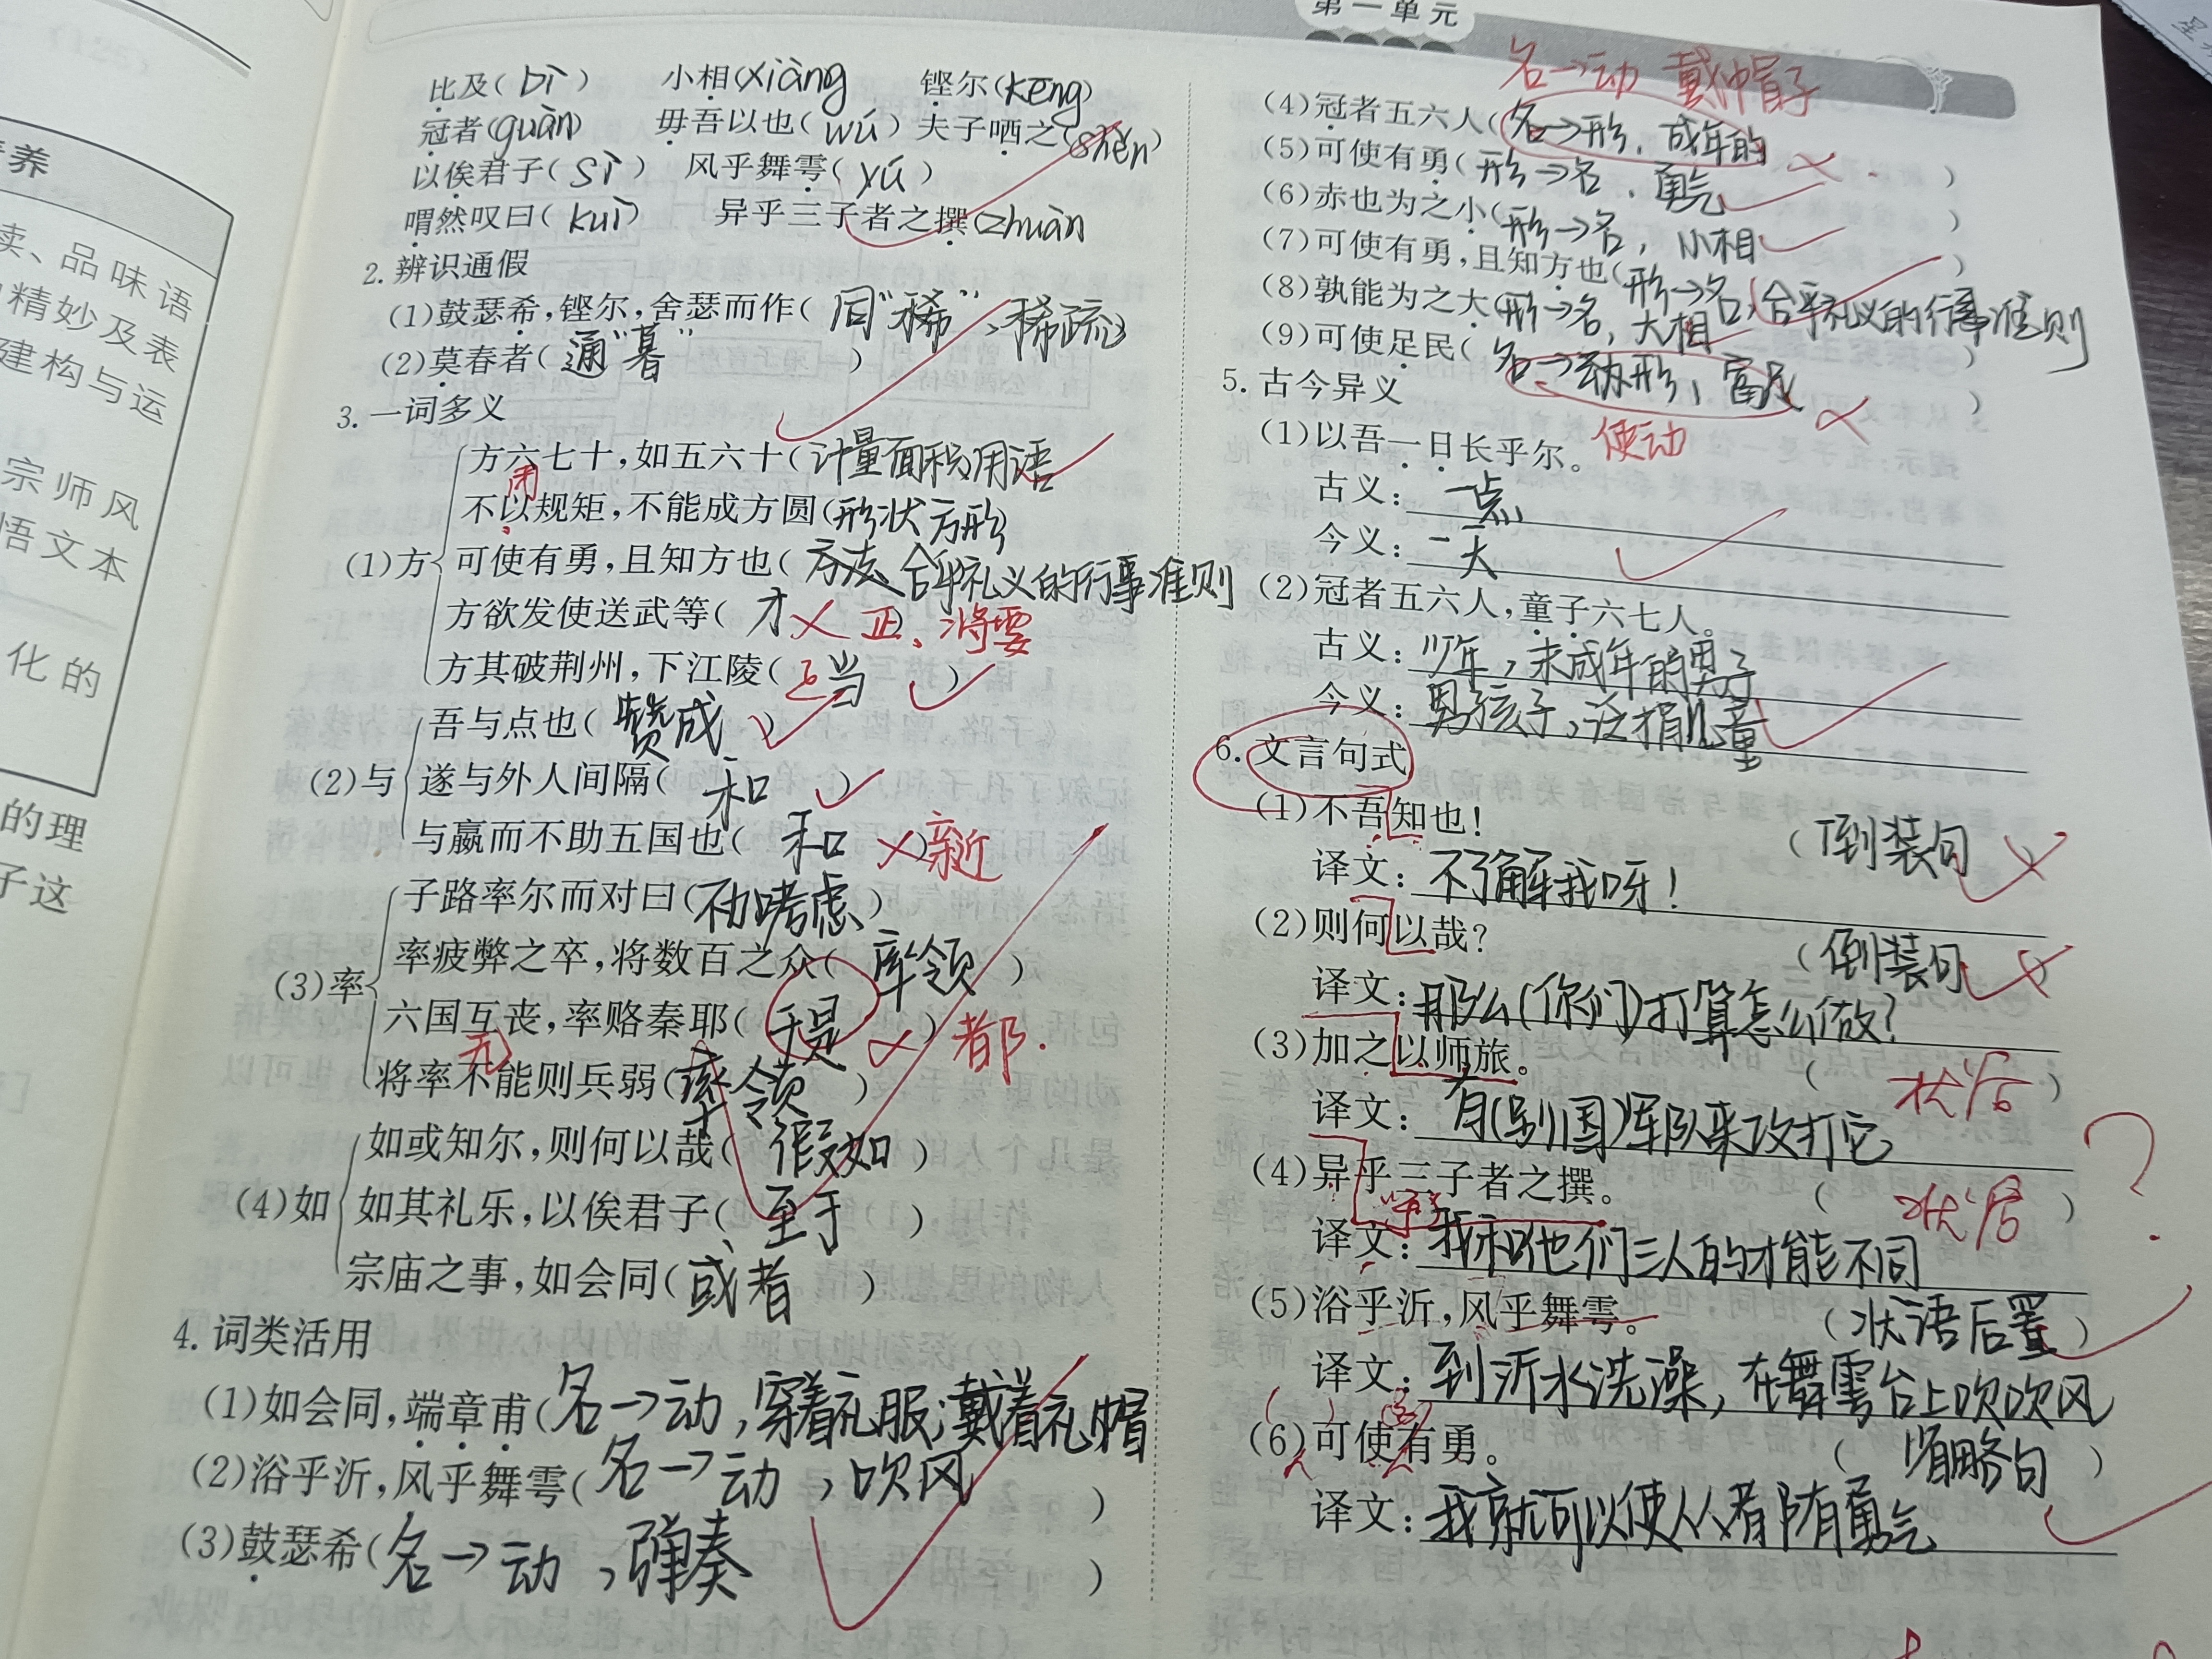 第一单元
比及(bì) 小相(xiàng 铿尔(kēng)
冠者(guàn) 毋吾以也(wú) 夫子哂之(shěn)
以俟君子(sì) 风乎舞雩(yú)
喟然叹曰(kuì) 异乎三子者之撰(zhuàn
2. 辨识通假
(1)鼓瑟希,铿尔,舍瑟而作(同“稀”,稀疏)
(2)莫春者(通“暮”)
3. 一词多义
(1)方
方六七十,如五六十(计量面积用语
用
不以规矩,不能成方圆(形状方形)
可使有勇,且知方也(方法 合乎礼义的行事准则
方欲发使送武等(才 正、将要
方其破荆州,下江陵(当)
(2)与
吾与点也(赞成)
遂与外人间隔(和)
与嬴而不助五国也(和)
(3)率
子路率尔而对曰(不加考虑)
率疲弊之卒,将数百之众(率领)
六国互丧,率赂秦耶(于是) 都.
将率不能则兵弱(率领)
(4)如
如或知尔,则何以哉(假如)
如其礼乐,以俟君子(至于)
宗庙之事,如会同(或者)
4. 词类活用
(1)如会同,端章甫(名→动,穿着礼服;戴着礼帽
(2)浴乎沂,风乎舞雩(名→动,吹风)
(3)鼓瑟希(名→动,弹奏)
名→动 戴帽子
(4)冠者五六人(名→形,成年的)
(5)可使有勇(形→名,勇气)
(6)赤也为之小(形→名,小相)
(7)可使有勇,且知方也(形→名,合乎礼义的行事准则
(8)孰能为之大(形→名,大相)
(9)可使足民(名→形,富足)
使动
5. 古今异义
(1)以吾一日长乎尔。
古义:一点
今义:一天
(2)冠者五六人,童子六七人。
古义:少年,未成年的男子
今义:男孩子,泛指儿童
6. 文言句式
(1)不吾知也! (倒装句
译文:不了解我呀!
(2)则何以哉? (倒装句
译文:那么(你们)打算怎么做?
(3)加之以师旅。 (状后)
译文:有(别国)军队来攻打它
(4)异乎三子者之撰。 (状后)
译文:我和他们三人的才能不同
(5)浴乎沂,风乎舞雩。 (状语后置)
译文:到沂水洗澡,在舞雩台上吹吹风
(6)可使有勇。 (省略句)
译文:我就可以使人人都有勇气